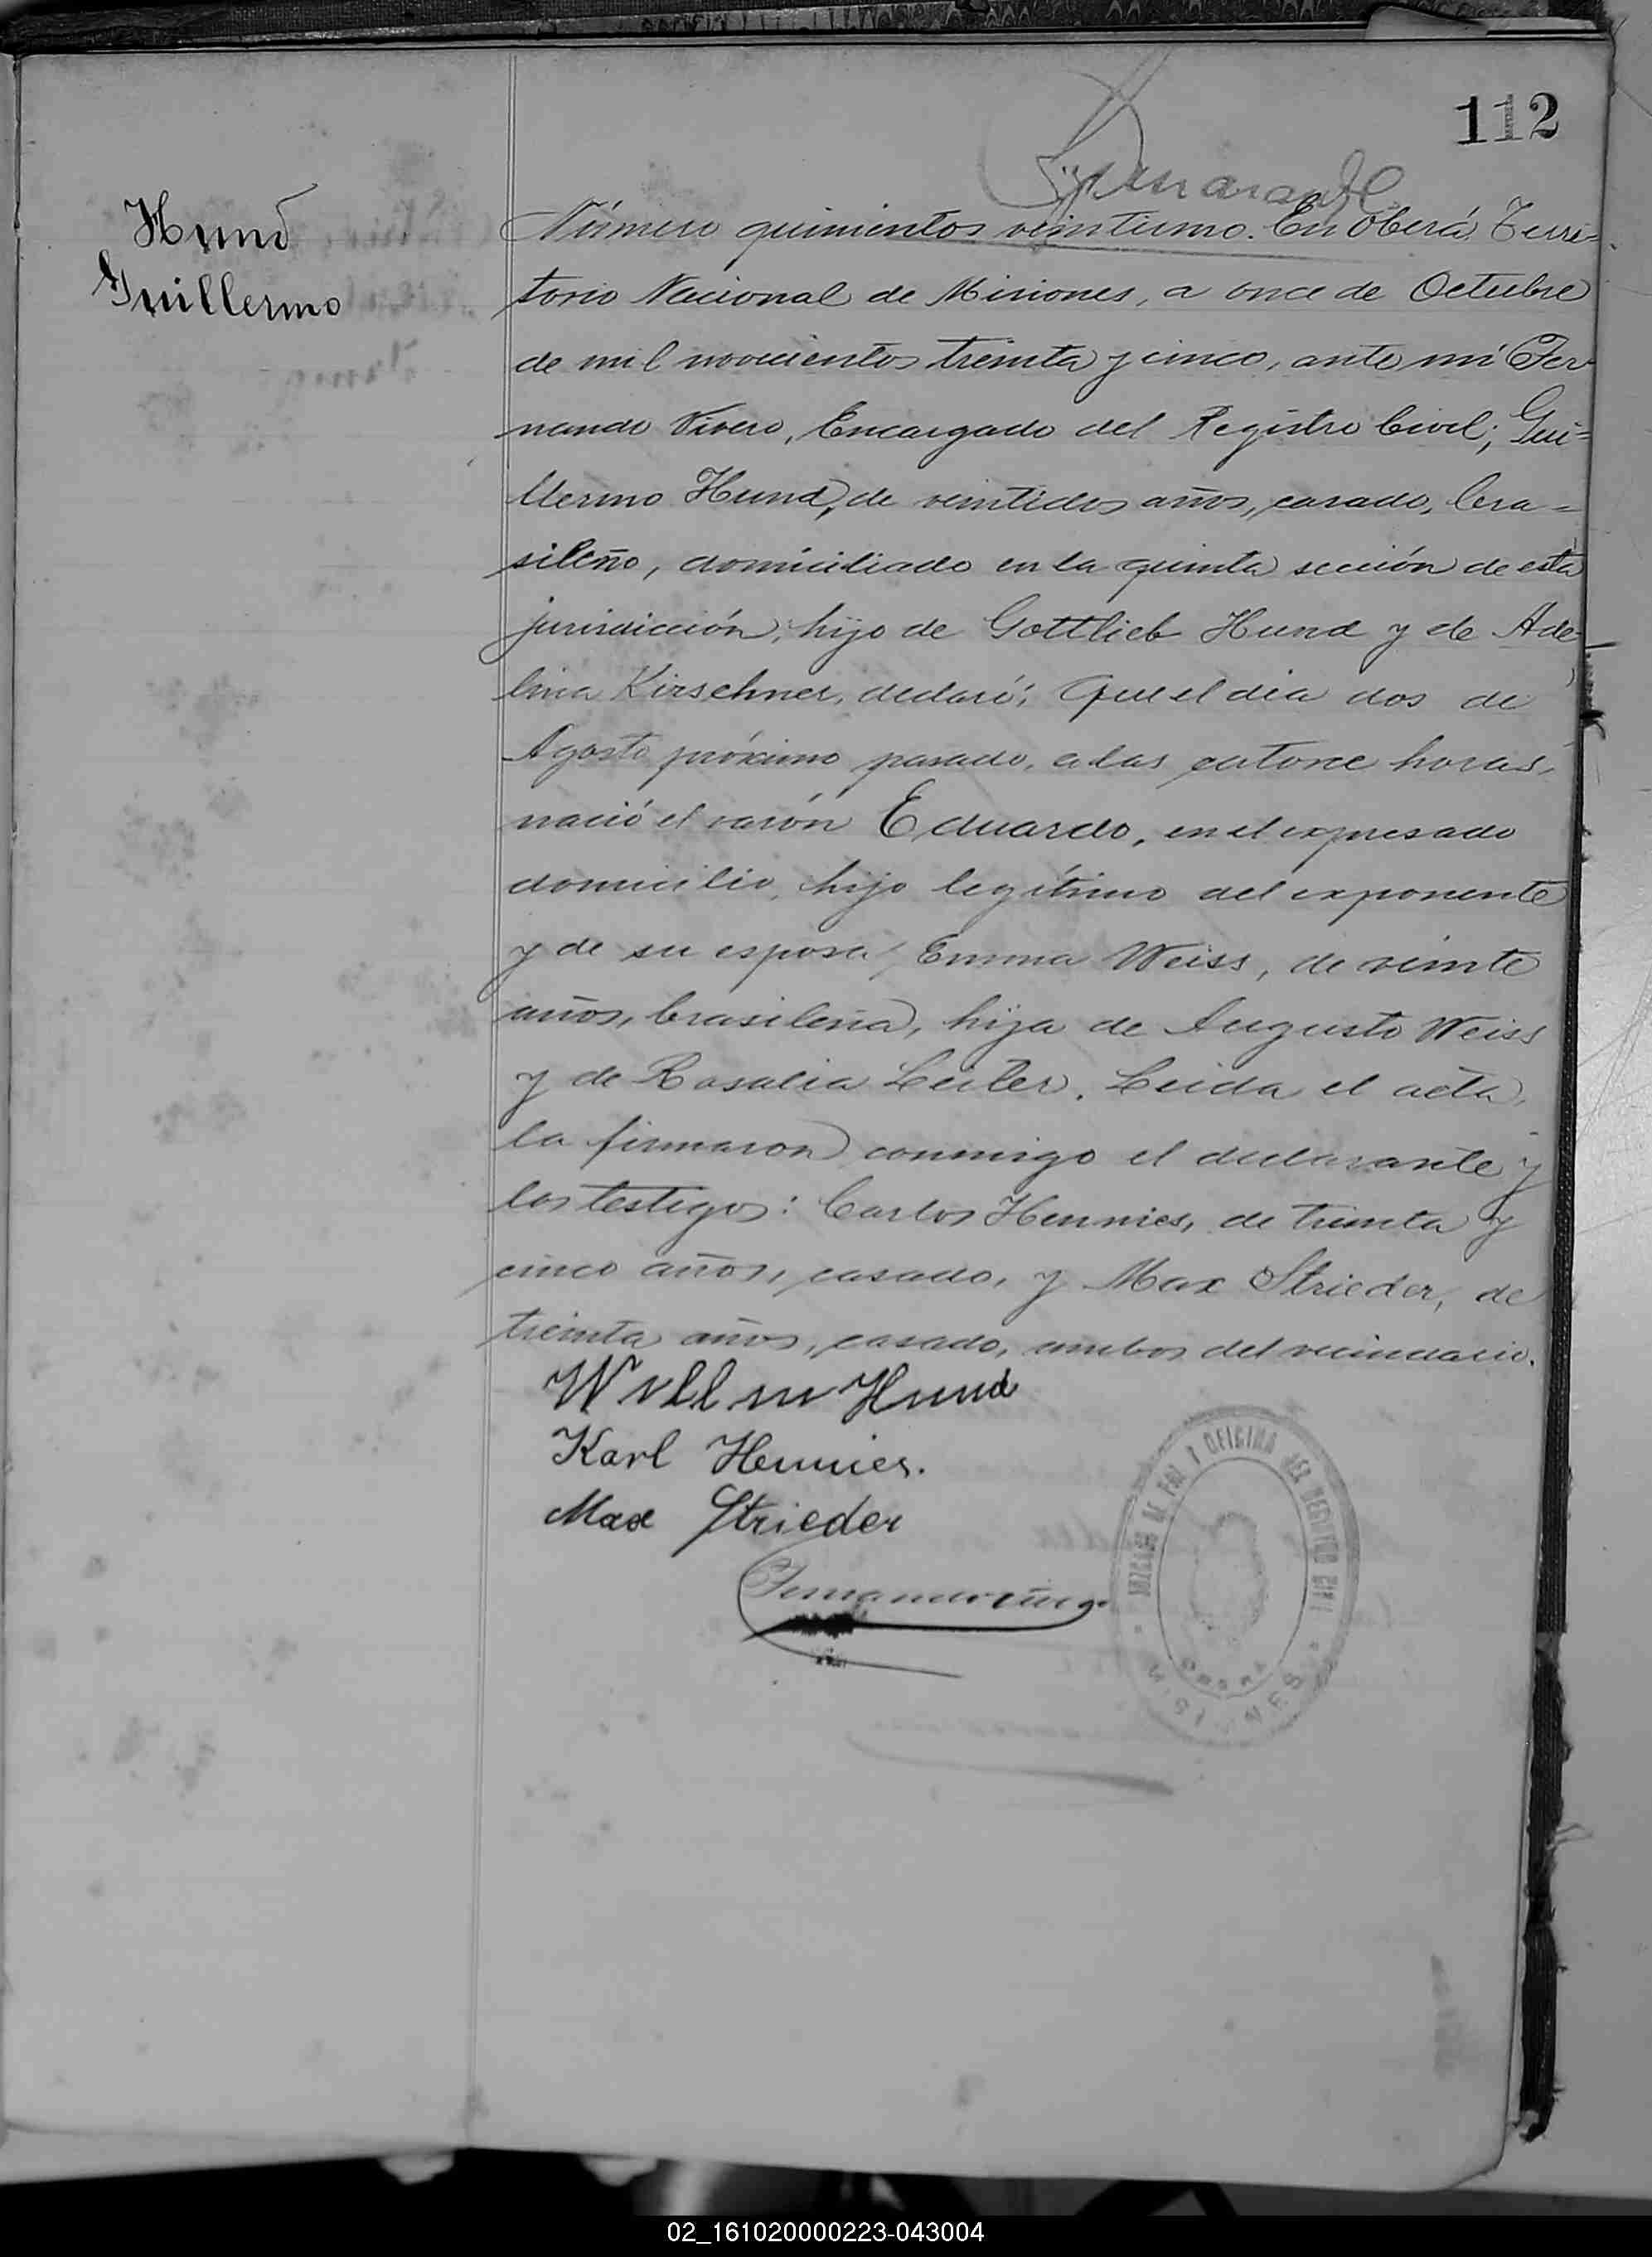 112
Hund
Guillermo
Número quinientos veintiuno. En Oberá, Terri=
torio Nacional de Misiones, a once de Octubre
de mil novecientos treinta y cinco, ante mí Fer
nando Vivero, Encargado del Registro Civil; Gui=
llermo Hund, de veintidos años, casado, bra=
sileño, domiciliado en la quinta sección de esta
jurisdicción; hijo de Gottlieb Hund y de Ade
lina Kirschner, declaró: Que el dia dos de
Agosto próximo pasado, a las catorce horas,
nació el varón Eduardo, en el expresado
domicilio, hijo legítimo del exponente
y de su esposa, Emma Weiss, de veinte
años, brasileña, hija de Augusto Weiss
y de Rosalia Leiter. Leida el acta,
la firmaron conmigo el declarante y
los testigos: Carlos Hennies, de treinta y
cinco años, casado, y Max Strieder, de
treinta años, casado, ambos del vecindario.
Hund
Karl Hennies.
Max Strieder
JUZGADO DE PAZ Y OFICINA DEL REGISTRO CIVIL
OBERA
MISIONES
02_161020000223-043004